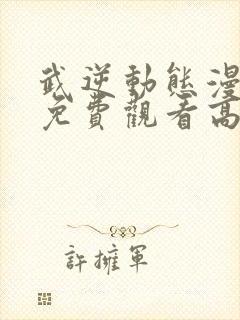 武逆動態漫
免費觀看高
許擁軍